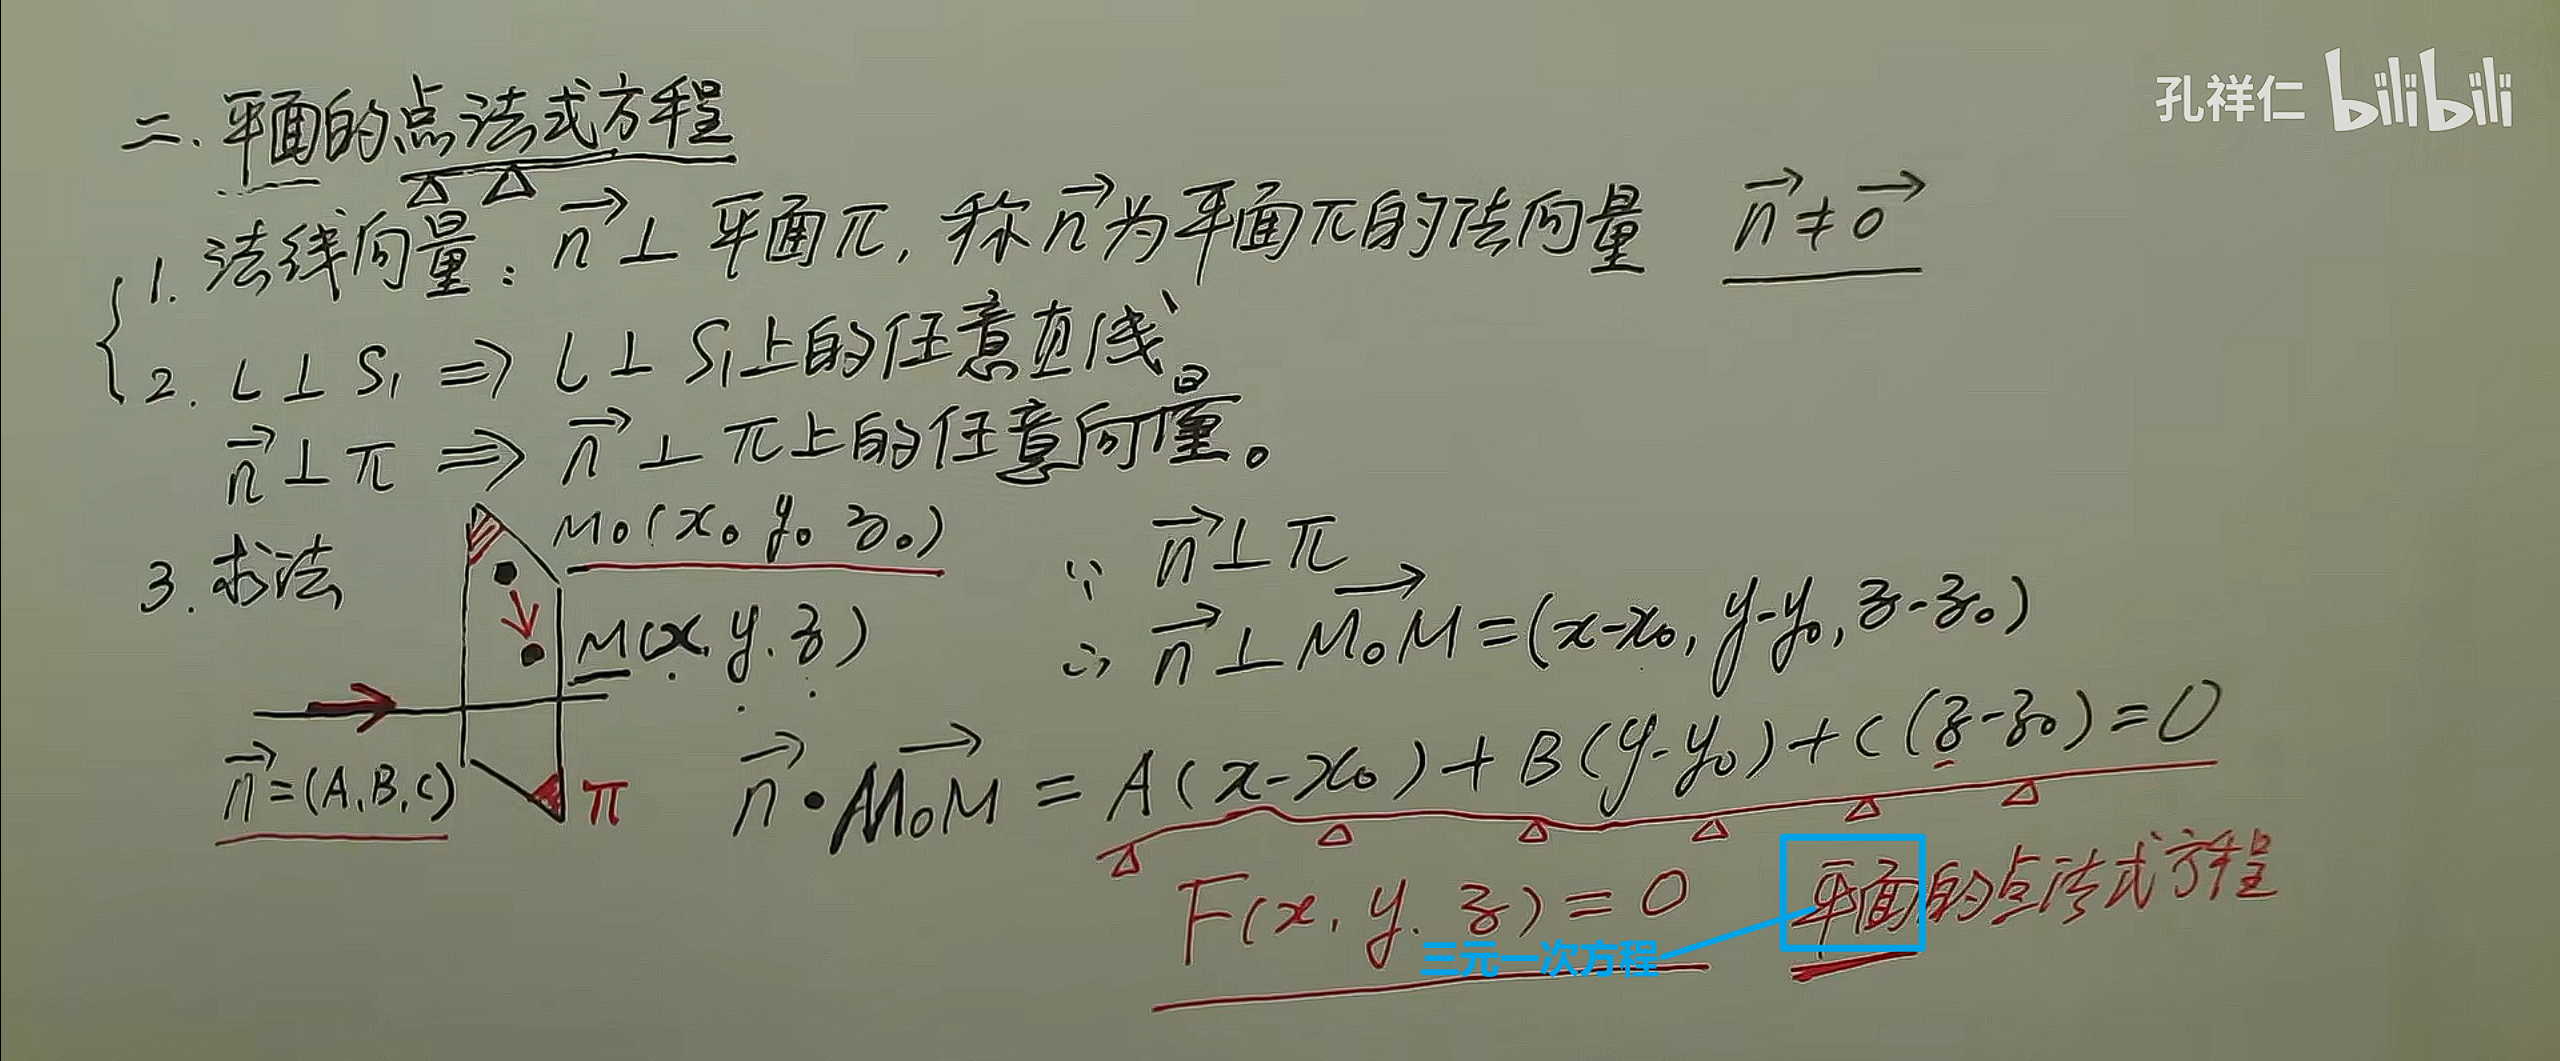 孔祥仁 bilibili
二. 平面的点法式方程
1. 法线向量: n⃗⊥平面π, 称n⃗为平面π的法向量 n⃗≠0⃗
2. L⊥S₁ ⇒ L⊥S₁上的任意直线。
n⃗⊥π ⇒ n⃗⊥π上的任意向量。
3. 求法
M₀(x₀ y₀ z₀)
M(x, y, z)
n⃗=(A,B,C)
π
∵ n⃗⊥π
∴ n⃗⊥M₀M⃗=(x-x₀, y-y₀, z-z₀)
n⃗·M₀M⃗=A(x-x₀)+B(y-y₀)+C(z-z₀)=0
F(x, y, z)=0 平面的点法式方程
三元一次方程